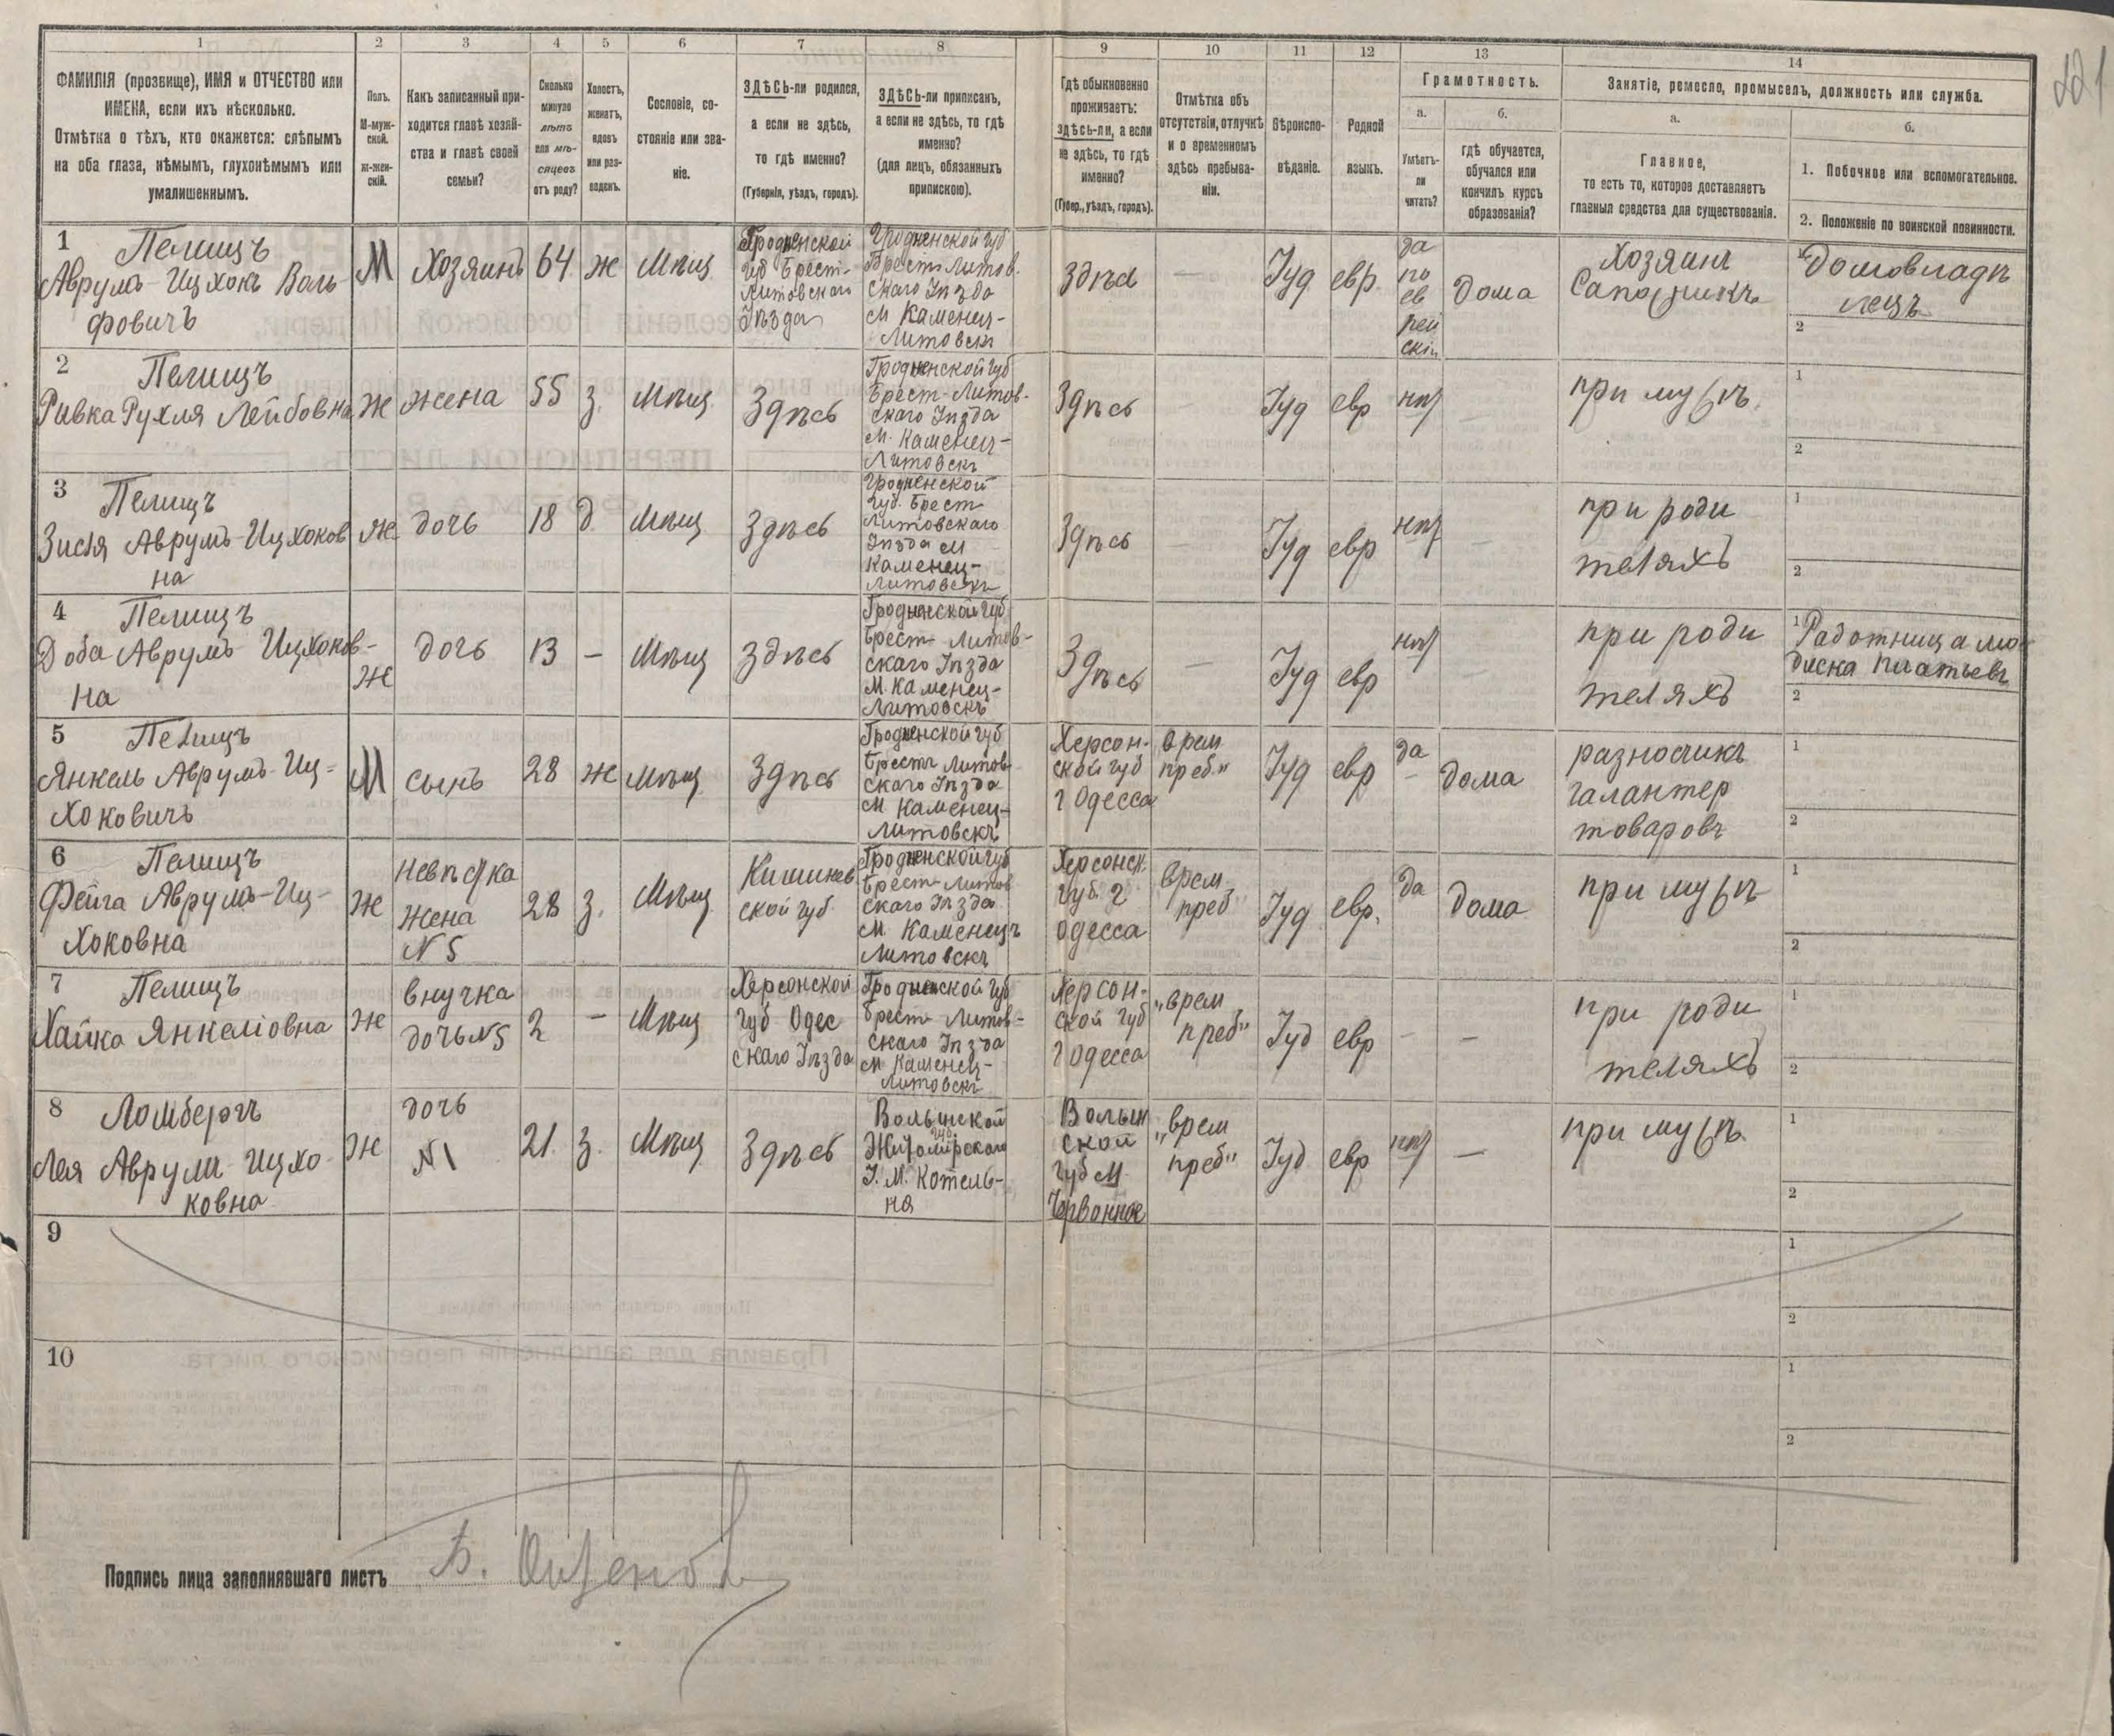 1 2 3 4 5 6 7 8 9 10 11 12 13 14
ФАМИЛІЯ (прозвище), ИМЯ и ОТЧЕСТВО или
ИМЕНА, если ихъ нѣсколько.
Отмѣтка о тѣхъ, кто окажется: слѣпымъ
на оба глаза, нѣмымъ, глухонѣмымъ или
умалишеннымъ.
Полъ.
М-муж-
ской.
ж-жен-
скій.
Какъ записанный при-
ходится главѣ хозяй-
ства и главѣ своей
семьи?
Сколько
минуло
лѣтъ
или мѣ-
сяцевъ
отъ роду?
Холостъ,
женатъ,
вдовъ
или раз-
веденъ.
Сословіе, со-
стояніе или зва-
ніе.
ЗДѢСЬ-ли родился,
а если не здѣсь,
то гдѣ именно?
(Губернія, уѣздъ, городъ).
ЗДѢСЬ-ли приписанъ,
а если не здѣсь, то гдѣ
именно?
(для лицъ, обязанныхъ
припискою).
Гдѣ обыкновенно
проживаетъ:
здѣсь-ли, а если
не здѣсь, то гдѣ
именно?
(Губер., уѣздъ, городъ).
Отмѣтка объ
отсутствіи, отлучкѣ
и о временномъ
здѣсь пребыва-
ніи.
Вѣроиспо-
вѣданіе.
Родной
языкъ.
Грамотность.
а.
Умѣетъ-
ли
читать?
б.
гдѣ обучается,
обучался или
кончилъ курсъ
образованія?
Занятіе, ремесло, промыселъ, должность или служба.
а.
Главное,
то есть то, которое доставляетъ
главныя средства для существованія.
б.
1. Побочное или вспомогательное.
2. Положеніе по воинской повинности.
1
Пелищъ
Аврумъ-Ицхокъ Воль-
фовичъ
М
Хозяинъ
64
ж
Мѣщ
Гродненской
губ Брест-
Литовскаго
Уѣзда
Гродненской губ
Брестъ Литов-
скаго Уѣзда
М Каменец-
Литовскъ
Здѣсь
—
Іуд
евр.
да
по
ев
рей
скі
Дома
Хозяинъ
Сапожникъ
1 Домовладѣ
лецъ
2
2
Пелищъ
Ривка Рухля Лейбовна
Ж
жена
55
з.
Мѣщ
Здѣсь
Гродненской губ
Брест-Литов-
скаго Уѣзда
М. Каменец-
Литовскъ
Здѣсь
—
Іуд
евр
нѣт
—
при мужѣ.
1
2
3
Пелищъ
Зисля Аврумъ-Ицхоков
на
Ж
дочь
18
д
Мѣщ
Здѣсь
Гродненской
губ. Брест
Литовскаго
Уѣзда М
Каменец-
Литовскъ
Здѣсь
—
Іуд
евр
нѣт
—
при роди
теляхъ
1
2
4
Пелищъ
Доба Аврумъ Ицхоков-
на
Ж
дочь
13
–
Мѣщ
Здѣсь
Гродненской губ
Брест-Литов-
скаго Уѣзда
М. Каменец-
Литовскъ
Здѣсь
—
Іуд
евр
нѣт
—
при роди
теляхъ
1 Работница мо-
диска платьевъ
2
5
Пелищъ
Янкель Аврумъ-Иц-
Хоковичъ
М
сынъ
28
ж
Мѣщ
Здѣсь
Гродненской губ
Брестъ Литов-
скаго Уѣзда
М Каменец-
Литовскъ
Херсон-
ской губ
г Одесса
врем
преб."
Іуд
евр
да
–
дома
разносчикъ
галантер
товаровъ
1
2
6
Пелищъ
Фейга Аврумъ-Иц-
Хоковна
Ж
невѣстка
жена
N 5
28
з.
Мѣщ
Кишинев
ской губ.
Гродненской губ
Брест-Литов
скаго Уѣзда
М. Каменецъ
Литовскъ
Херсонск.
губ г
Одесса
врем
преб"
Іуд
евр.
да
дома
при мужѣ
1
2
7
Пелищъ
Хайка Янкеліовна
Ж
внучка
дочь N5
2
–
Мѣщ
Херсонской
губ Одес
скаго Уѣзда
Гродненской губ
Брест-Литов-
скаго Уѣзда
М Каменец-
Литовскъ
Херсон-
ской губ
г Одесса
„врем
преб"
Іуд
евр
–
–
при роди
теляхъ
1
2
8
Ломбергъ
Лея Аврум-Ицхо-
ковна
Ж
дочь
N1
21.
з.
Мѣщ
Здѣсь
Волынской
губ.
Житомірскаго
У. М. Котель-
ня
Волын
ской
губ М
Червонное
„врем
преб"
Іуд
евр
нѣт
—
при мужѣ.
1
2
9
1
2
10
1
2
Подпись лица заполнявшаго листъ